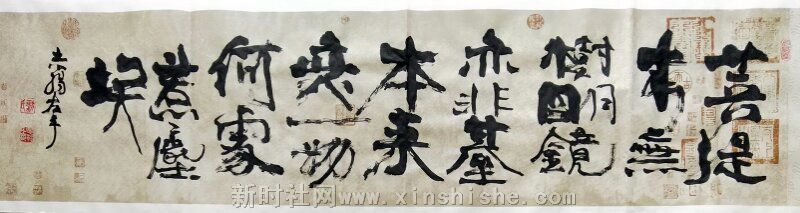 菩提
本無
樹明鏡
亦非臺
本来
无一物
何處
惹塵
埃
左手
新时社网 www.xinshishe.com